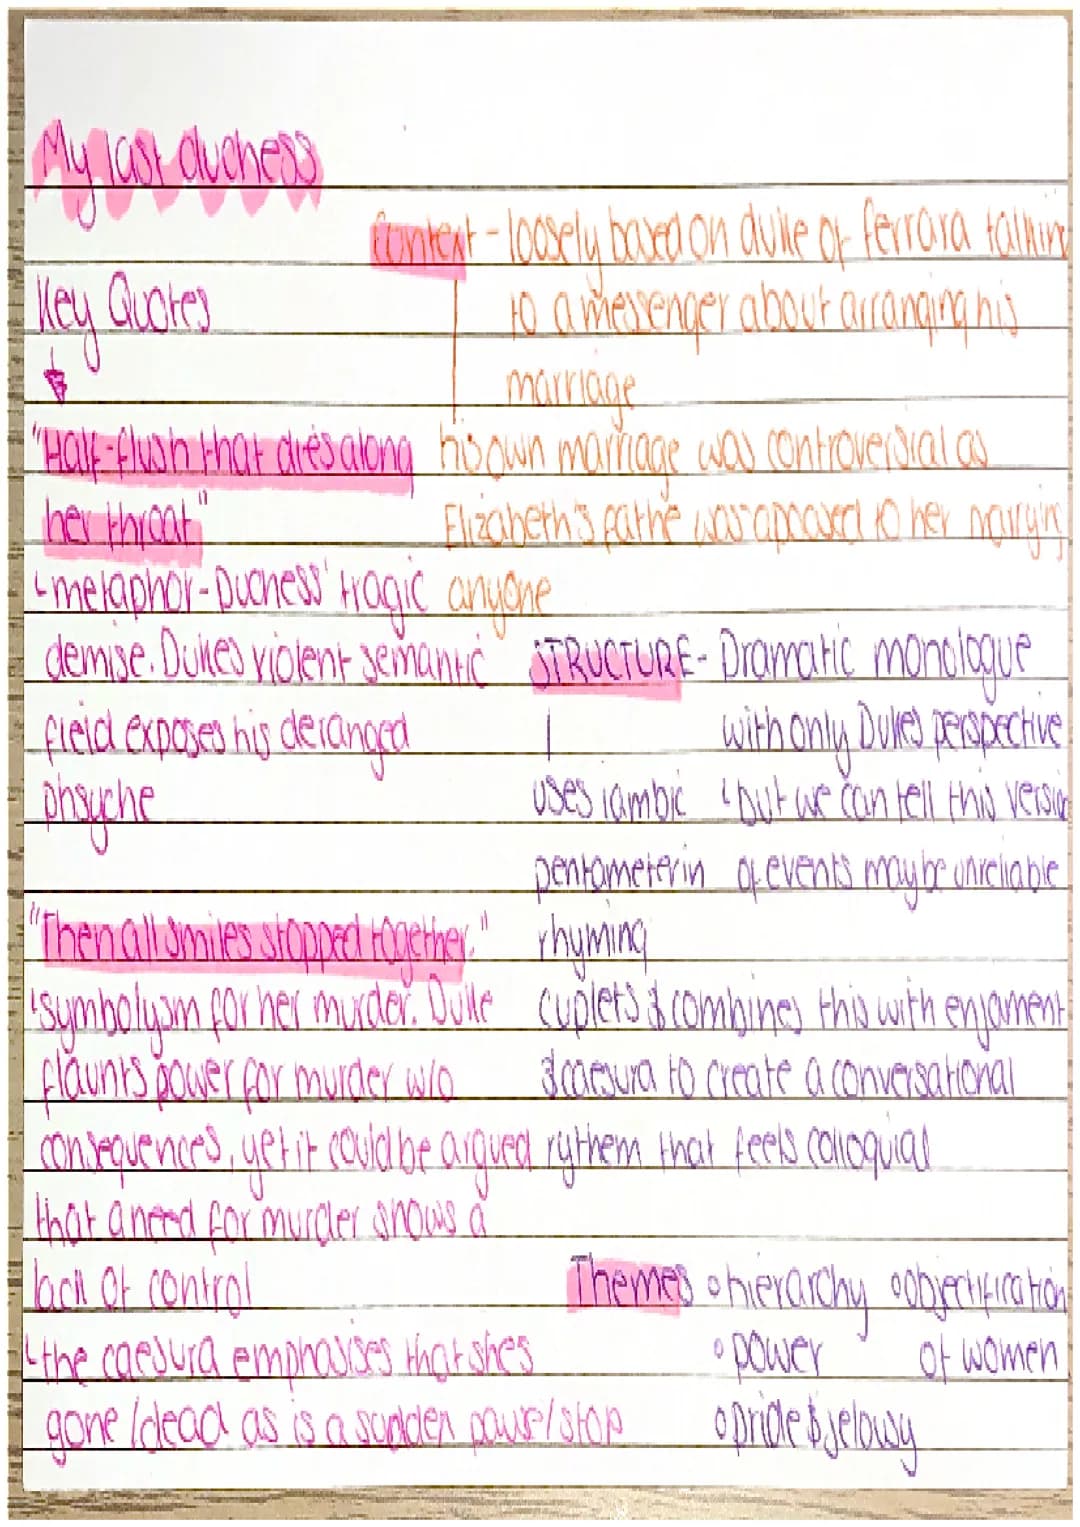 My last duchess
Context - loosely based on duke of ferrara talking
to a messenger about arranging his
marriage
his own marriage was controversial as
Elizabeth's fathe was apposed to her marrying
anyone
Key Quotes
"Half-flush that dies along
her throat"
metaphor - Duchess' tragic
demise. Dukes violent semantic
field exposes his deranged
phsyche
"Then all smiles stopped together."
symbolysm for her murder. Duke
flaunts power for murder w/o
consequences, yet it could be argued
that a need for murder shows a
lack of control
the caesura emphasises that shes
gone/dead as is a sudden pause/stop
STRUCTURE - Dramatic monologue
with only Dukes perspective
but we can tell this version
of events may be unreliable
uses iambic
pentameter in
rhyming
cuplets & combines this with enjament
& caesura to create a conversational
rythem that feels coloquial
Themes
hierarchy
power
pride & jelowsy
objectification
of women